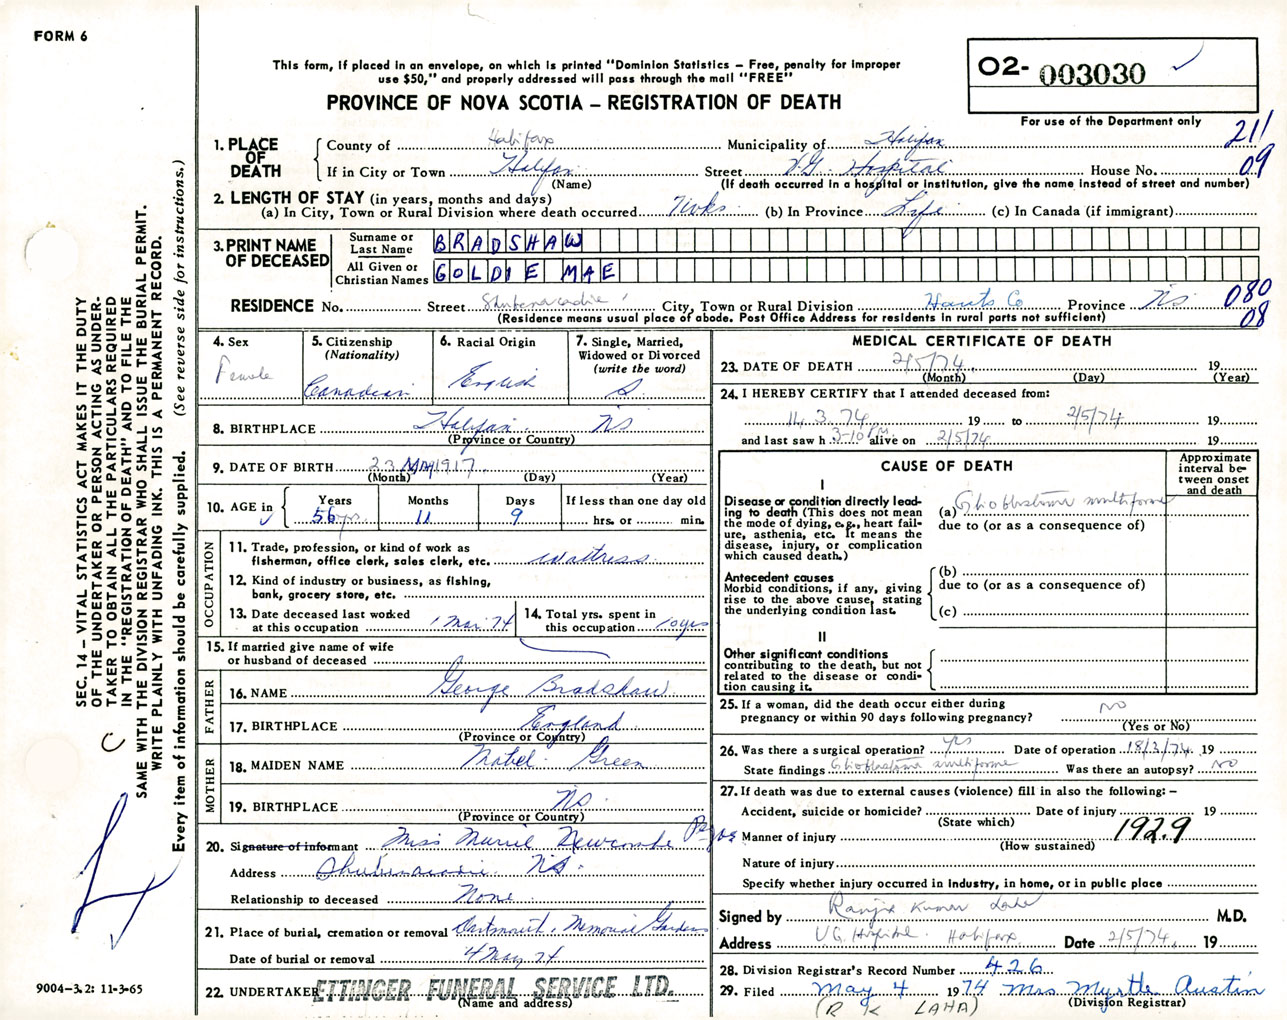 FORM 6
This form, if placed in an envelope, on which is printed "Dominion Statistics – Free, penalty for improper
use $50," and properly addressed will pass through the mail "FREE"
PROVINCE OF NOVA SCOTIA – REGISTRATION OF DEATH
O2- 003030
For use of the Department only
211
09
1. PLACE OF DEATH
County of Halifax Municipality of Halifax
If in City or Town Halifax Street V.G. Hospital House No.
(Name) (If death occurred in a hospital or institution, give the name instead of street and number)
2. LENGTH OF STAY (in years, months and days)
(a) In City, Town or Rural Division where death occurred 7 wks. (b) In Province Life (c) In Canada (if immigrant)
3. PRINT NAME OF DECEASED
Surname or Last Name BRADSHAW
All Given or Christian Names GOLDIE MAE
RESIDENCE No. Street Shubenacadie City, Town or Rural Division Hants Co Province N.S 080
(Residence means usual place of abode. Post Office Address for residents in rural parts not sufficient) 08
4. Sex Female
5. Citizenship (Nationality) Canadian
6. Racial Origin English
7. Single, Married, Widowed or Divorced (write the word) S.
8. BIRTHPLACE Halifax NS
(Province or Country)
9. DATE OF BIRTH 23 May 1917
(Month) (Day) (Year)
10. AGE in Years 56 yrs. Months 11 Days 9 If less than one day old hrs. or min.
OCCUPATION
11. Trade, profession, or kind of work as
fisherman, office clerk, sales clerk, etc. waitress
12. Kind of industry or business, as fishing,
bank, grocery store, etc.
13. Date deceased last worked
at this occupation 1 Mar 74
14. Total yrs. spent in
this occupation 10 yrs
15. If married give name of wife
or husband of deceased
FATHER
16. NAME George Bradshaw
17. BIRTHPLACE England
(Province or Country)
MOTHER
18. MAIDEN NAME Mabel Green
19. BIRTHPLACE NS.
(Province or Country)
20. Signature of informant Miss Muriel Newcombe
Address Shubenacadie NS.
Relationship to deceased None
21. Place of burial, cremation or removal Dartmouth Memorial Gardens
Date of burial or removal 4 May 74
22. UNDERTAKER ETTINGER FUNERAL SERVICE LTD.
(Name and address)
MEDICAL CERTIFICATE OF DEATH
23. DATE OF DEATH 2/5/74. 19
(Month) (Day) (Year)
24. I HEREBY CERTIFY that I attended deceased from:
14.3.74 19 to 2/5/74 19
and last saw h 3-10 P.M. alive on 2/5/74 19
CAUSE OF DEATH
Approximate interval between onset and death
I
Disease or condition directly leading to death (This does not mean the mode of dying, e.g., heart failure, asthenia, etc. It means the disease, injury, or complication which caused death.)
(a) Glioblastoma multiforme
due to (or as a consequence of)
Antecedent causes
Morbid conditions, if any, giving rise to the above cause, stating the underlying condition last.
(b)
due to (or as a consequence of)
(c)
II
Other significant conditions
contributing to the death, but not related to the disease or condition causing it.
25. If a woman, did the death occur either during
pregnancy or within 90 days following pregnancy? NO
(Yes or No)
26. Was there a surgical operation? yes Date of operation 18/3/74. 19
State findings Glioblastoma multiforme Was there an autopsy? NO
27. If death was due to external causes (violence) fill in also the following: –
Accident, suicide or homicide? Date of injury 19
(State which)
Manner of injury 1929
(How sustained)
Nature of injury
Specify whether injury occurred in industry, in home, or in public place
Signed by Ranjit Kumar Laha M.D.
Address V G Hospital. Halifax Date 2/5/74. 19
28. Division Registrar's Record Number 426
29. Filed May 4 1974 Mrs Myrtle Austin
(Division Registrar)
(R K LAHA)
SEC. 14 – VITAL STATISTICS ACT MAKES IT THE DUTY
OF THE UNDERTAKER OR PERSON ACTING AS UNDER-
TAKER TO OBTAIN ALL THE PARTICULARS REQUIRED
IN THE "REGISTRATION OF DEATH" AND TO FILE THE
SAME WITH THE DIVISION REGISTRAR WHO SHALL ISSUE THE BURIAL PERMIT.
WRITE PLAINLY WITH UNFADING INK. THIS IS A PERMANENT RECORD.
Every item of information should be carefully supplied. (See reverse side for instructions.)
9004-3.2: 11-3-65